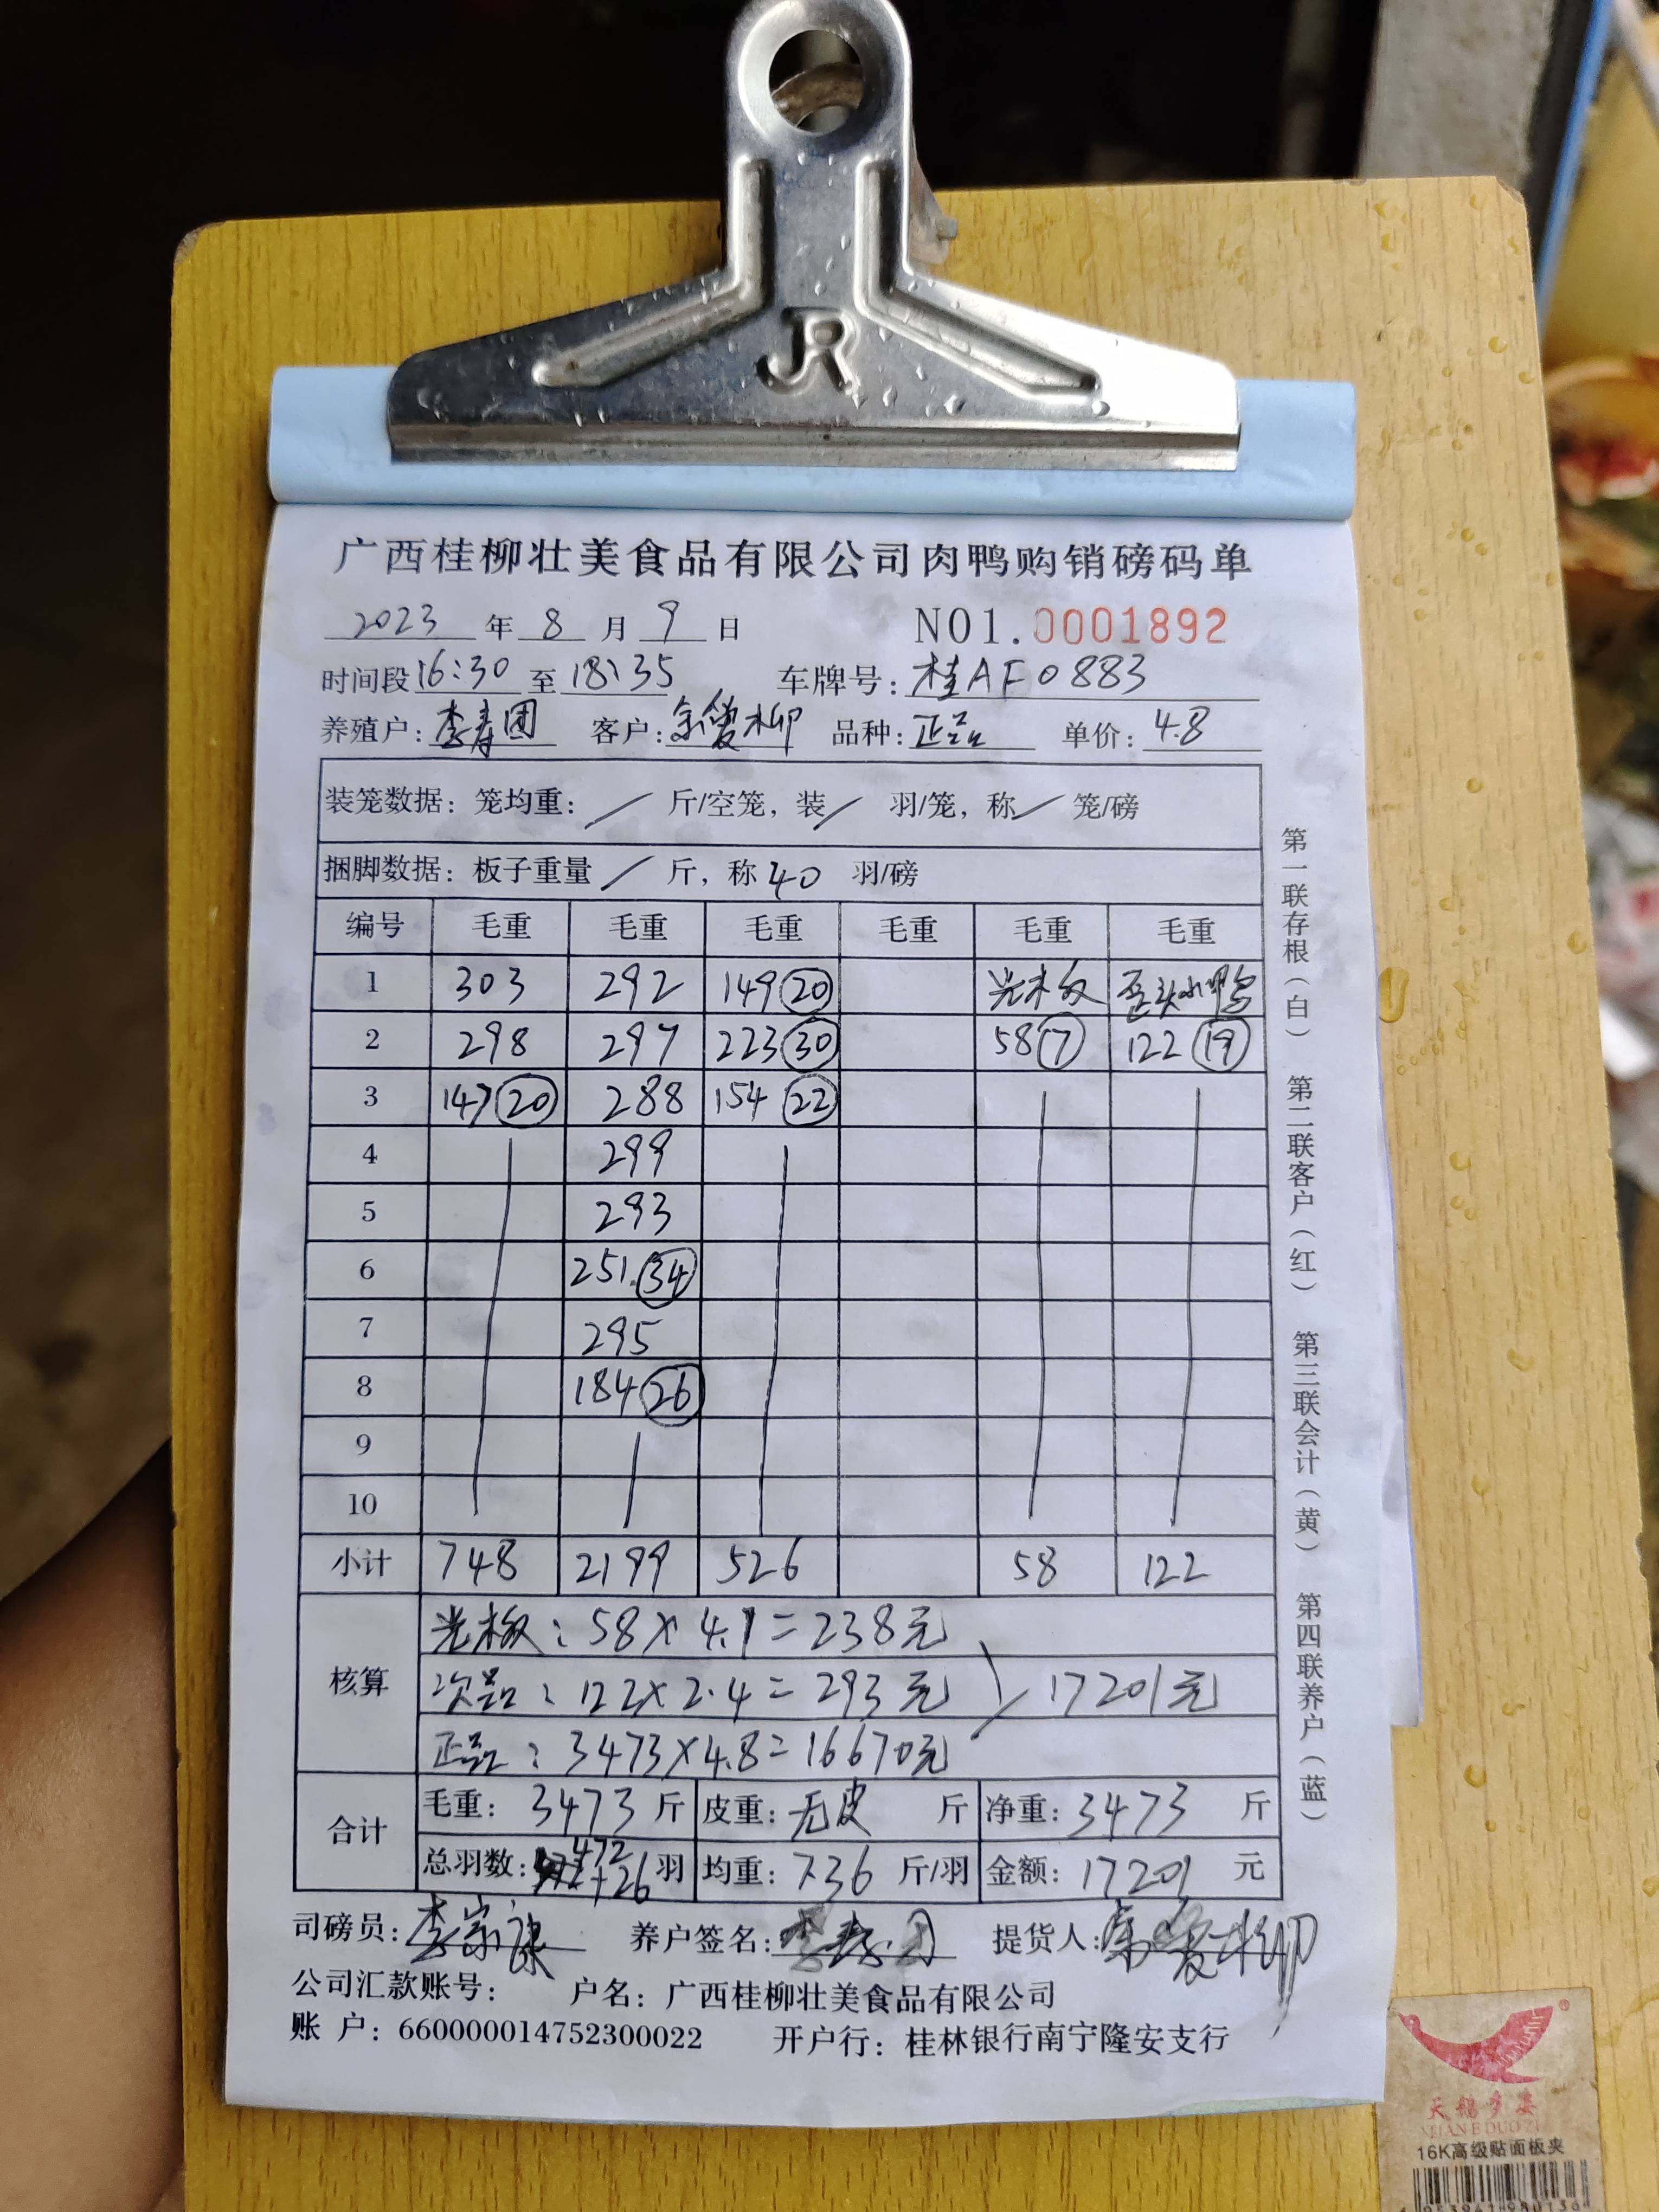 JR
广西桂柳壮美食品有限公司肉鸭购销磅码单
2023 年 8 月 9 日 NO1.0001892
时间段 16:30 至 18:35 车牌号: 桂AF0883
养殖户: 李寿团 客户: 柳 品种: 正品 单价: 4.8
装笼数据: 笼均重: / 斤/空笼, 装 / 羽/笼, 称 / 笼/磅
捆脚数据: 板子重量 / 斤, 称 40 羽/磅
编号 毛重 毛重 毛重 毛重 毛重 毛重
1 303 292 149 20 光板 歪头小鸭
2 298 297 223 30 58 7 122 19
3 147 20 288 154 22
4 299
5 293
6 251 34
7 295
8 184 26
9
10
小计 748 2199 526 58 122
核算
光板: 58×4.1=238元
次品: 122×2.4=293元 17201元
正品: 3473×4.8=16670元
合计
毛重: 3473 斤 皮重: 无皮 斤 净重: 3473 斤
总羽数: 472+26 羽 均重: 7.36 斤/羽 金额: 17201 元
司磅员: 李 养户签名: 李寿团 提货人: 柳
公司汇款账号: 户名: 广西桂柳壮美食品有限公司
账 户: 660000014752300022 开户行: 桂林银行南宁隆安支行
第一联存根(白) 第二联客户(红) 第三联会计(黄) 第四联养户(蓝)
16K高级贴面板夹